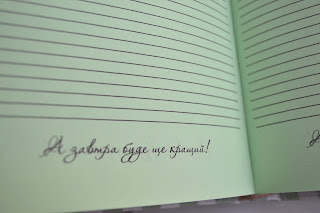 А завтра буде ще кращий!